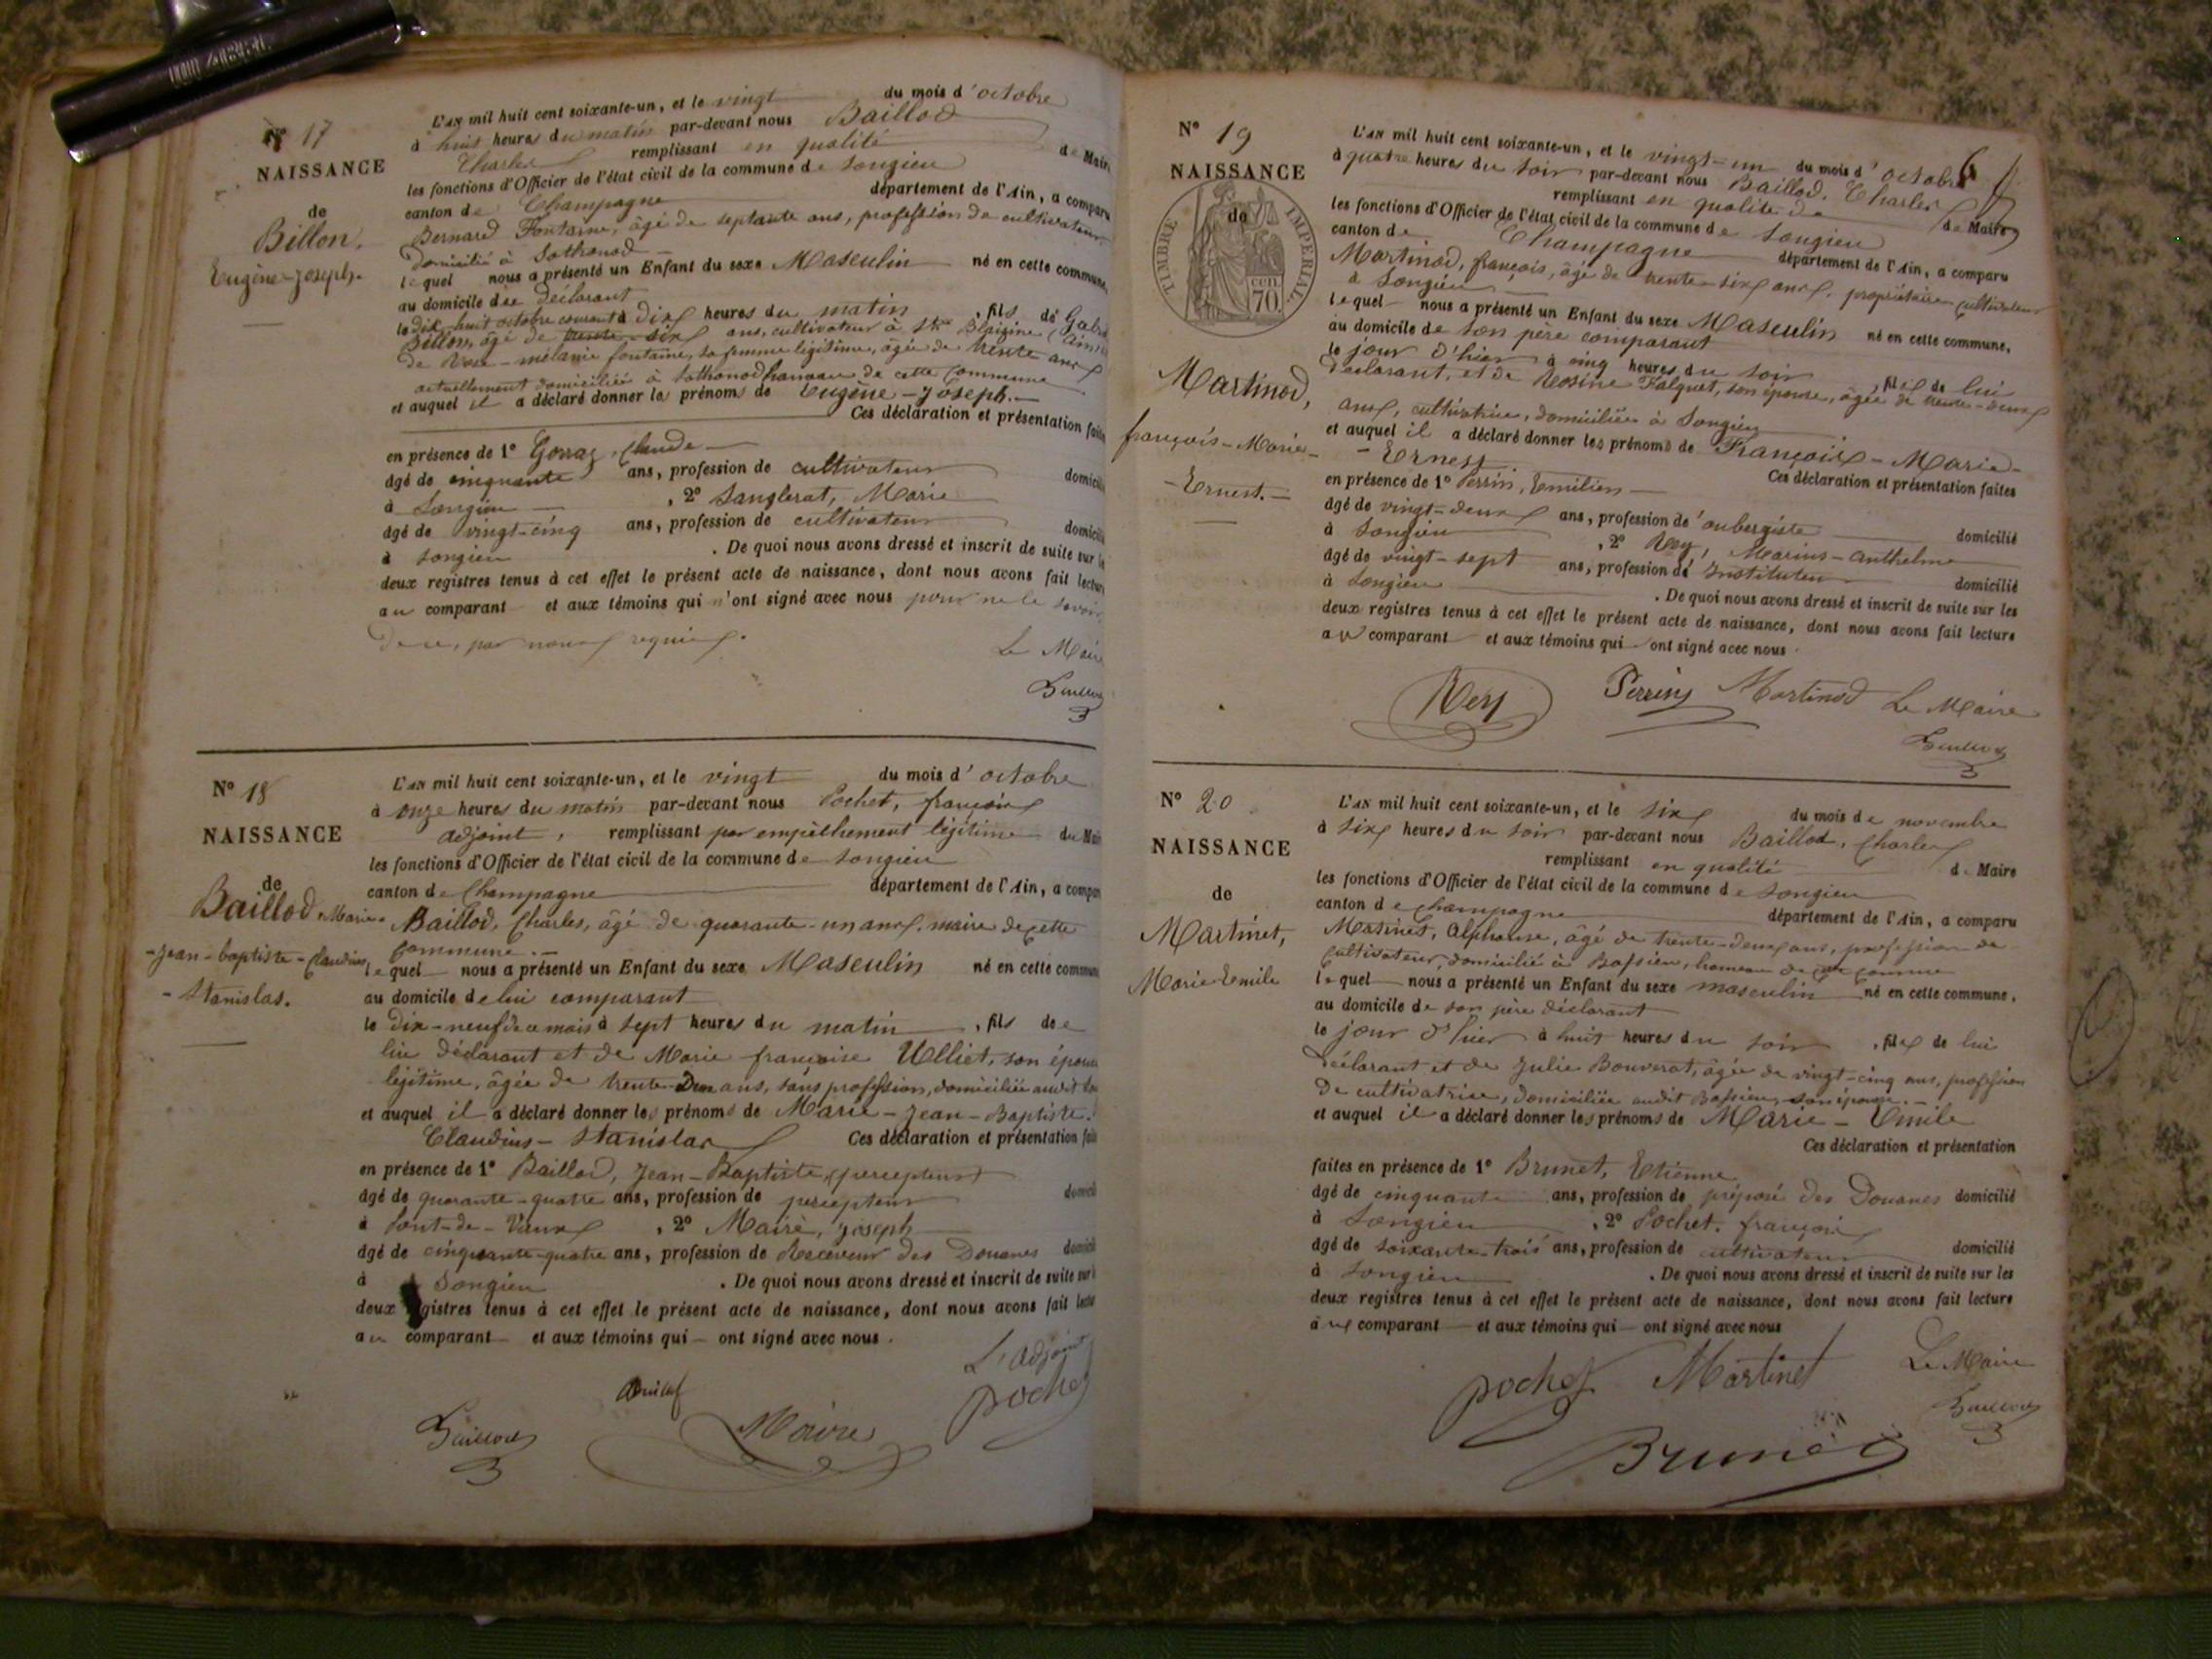 N° 17
NAISSANCE
de
Billon,
Eugène-Joseph.
L'AN mil huit cent soixante-un, et le vingt du mois d'octobre
à huit heures du matin par-devant nous Baillod
Charles remplissant en qualité de Maire
les fonctions d'Officier de l'état civil de la commune de Songieu
canton de Champagne département de l'Ain, a comparu
Bernard Fontaine, âgé de septante ans, profession de cultivateur
domicilié à Sothonod
lequel nous a présenté un Enfant du sexe Masculin né en cette commune,
au domicile du déclarant
le dix-huit octobre courant à dix heures du matin, fils de
Billon, âgé de trente-six ans, cultivateur à
de mélanie fontaine, sa femme légitime, âgée de trente ans
actuellement domiciliée à Sothonod hameau de cette commune
et auquel il a déclaré donner les prénoms de Eugène-Joseph.
Ces déclaration et présentation faites
en présence de 1° Gorraz, Claude
âgé de cinquante ans, profession de cultivateur domicilié
à Songieu, 2° Sanglerat, Marie
âgé de vingt-cinq ans, profession de cultivateur domicilié
à Songieu. De quoi nous avons dressé et inscrit de suite sur les
deux registres tenus à cet effet le présent acte de naissance, dont nous avons fait lecture
au comparant et aux témoins qui n'ont signé avec nous pour ne le savoir
de ce, par nous requis.
Le Maire
Baillod
N° 18
NAISSANCE
de
Baillod, Marie-
-Jean-baptiste-Claudius
-Stanislas.
L'AN mil huit cent soixante-un, et le vingt du mois d'octobre
à onze heures du matin par-devant nous Pochet, françois
adjoint, remplissant par empêchement légitime du Maire
les fonctions d'Officier de l'état civil de la commune de Songieu
canton de Champagne département de l'Ain, a comparu
Baillod, Charles, âgé de quarante-un ans, maire de cette
commune.
lequel nous a présenté un Enfant du sexe Masculin né en cette commune
au domicile de lui comparant
le dix-neuf de ce mois à sept heures du matin, fils de
lui déclarant et de Marie françoise Ulliet, son épouse
légitime, âgée de trente-deux ans, sans profession, domiciliée audit
et auquel il a déclaré donner les prénoms de Marie-Jean-Baptiste-
Claudius-Stanislas Ces déclaration et présentation faites
en présence de 1° Baillod, Jean-Baptiste (percepteur)
âgé de quarante-quatre ans, profession de percepteur domicilié
à Pont-de-Vaux, 2° Maire, Joseph
âgé de cinquante-quatre ans, profession de Receveur des Douanes domicilié
à Songieu. De quoi nous avons dressé et inscrit de suite sur les
deux registres tenus à cet effet le présent acte de naissance, dont nous avons fait lecture
au comparant et aux témoins qui ont signé avec nous.
L'adjoint
Pochet
Baillod
Maire
N° 19
NAISSANCE
de
TIMBRE IMPERIAL
70.
Martinod,
françois-Marie-
-Ernest.
L'AN mil huit cent soixante-un, et le vingt-un du mois d'octobre
à quatre heures du soir par-devant nous Baillod, Charles
remplissant en qualité de de Maire
les fonctions d'Officier de l'état civil de la commune de Songieu
canton de Champagne département de l'Ain, a comparu
Martinod, françois, âgé de trente-six ans, propriétaire cultivateur
à Songieu
lequel nous a présenté un Enfant du sexe Masculin né en cette commune,
au domicile de son père comparant
le jour d'hier à cinq heures du soir, fils de lui
déclarant, et de Rosine Falquet, son épouse, âgée de trente-deux
ans, cultivatrice, domiciliée à Songieu
et auquel il a déclaré donner les prénoms de François-Marie-
-Ernest Ces déclaration et présentation faites
en présence de 1° Perrin, Emilien
âgé de vingt-deux ans, profession d'aubergiste domicilié
à Songieu, 2° Rey, Marius-Anthelme
âgé de vingt-sept ans, profession d'Instituteur domicilié
à Songieu. De quoi nous avons dressé et inscrit de suite sur les
deux registres tenus à cet effet le présent acte de naissance, dont nous avons fait lecture
au comparant et aux témoins qui ont signé avec nous.
Rey Perrin Martinod Le Maire
Baillod
N° 20
NAISSANCE
de
Martinet,
Marie Emile
L'AN mil huit cent soixante-un, et le six du mois de novembre
à six heures du soir par-devant nous Baillod, Charles
remplissant en qualité de Maire
les fonctions d'Officier de l'état civil de la commune de Songieu
canton de Champagne département de l'Ain, a comparu
Martinet, Alphonse, âgé de trente-deux ans, profession de
cultivateur, domicilié à Bassieu, hameau de commune
lequel nous a présenté un Enfant du sexe masculin né en cette commune,
au domicile de son père déclarant
le jour d'hier à huit heures du soir, fils de lui
déclarant et de Julie Bouverat, âgée de vingt-cinq ans, profession
de cultivatrice, domiciliée audit Bassieu, son épouse.
et auquel il a déclaré donner les prénoms de Marie-Emile
Ces déclaration et présentation
faites en présence de 1° Brunet, Etienne
âgé de cinquante ans, profession de préposé des Douanes domicilié
à Songieu, 2° Pochet, françois
âgé de soixante-trois ans, profession de cultivateur domicilié
à Songieu. De quoi nous avons dressé et inscrit de suite sur les
deux registres tenus à cet effet le présent acte de naissance, dont nous avons fait lecture
aux comparant et aux témoins qui ont signé avec nous
Pochet Martinet Le Maire
Brunet Baillod